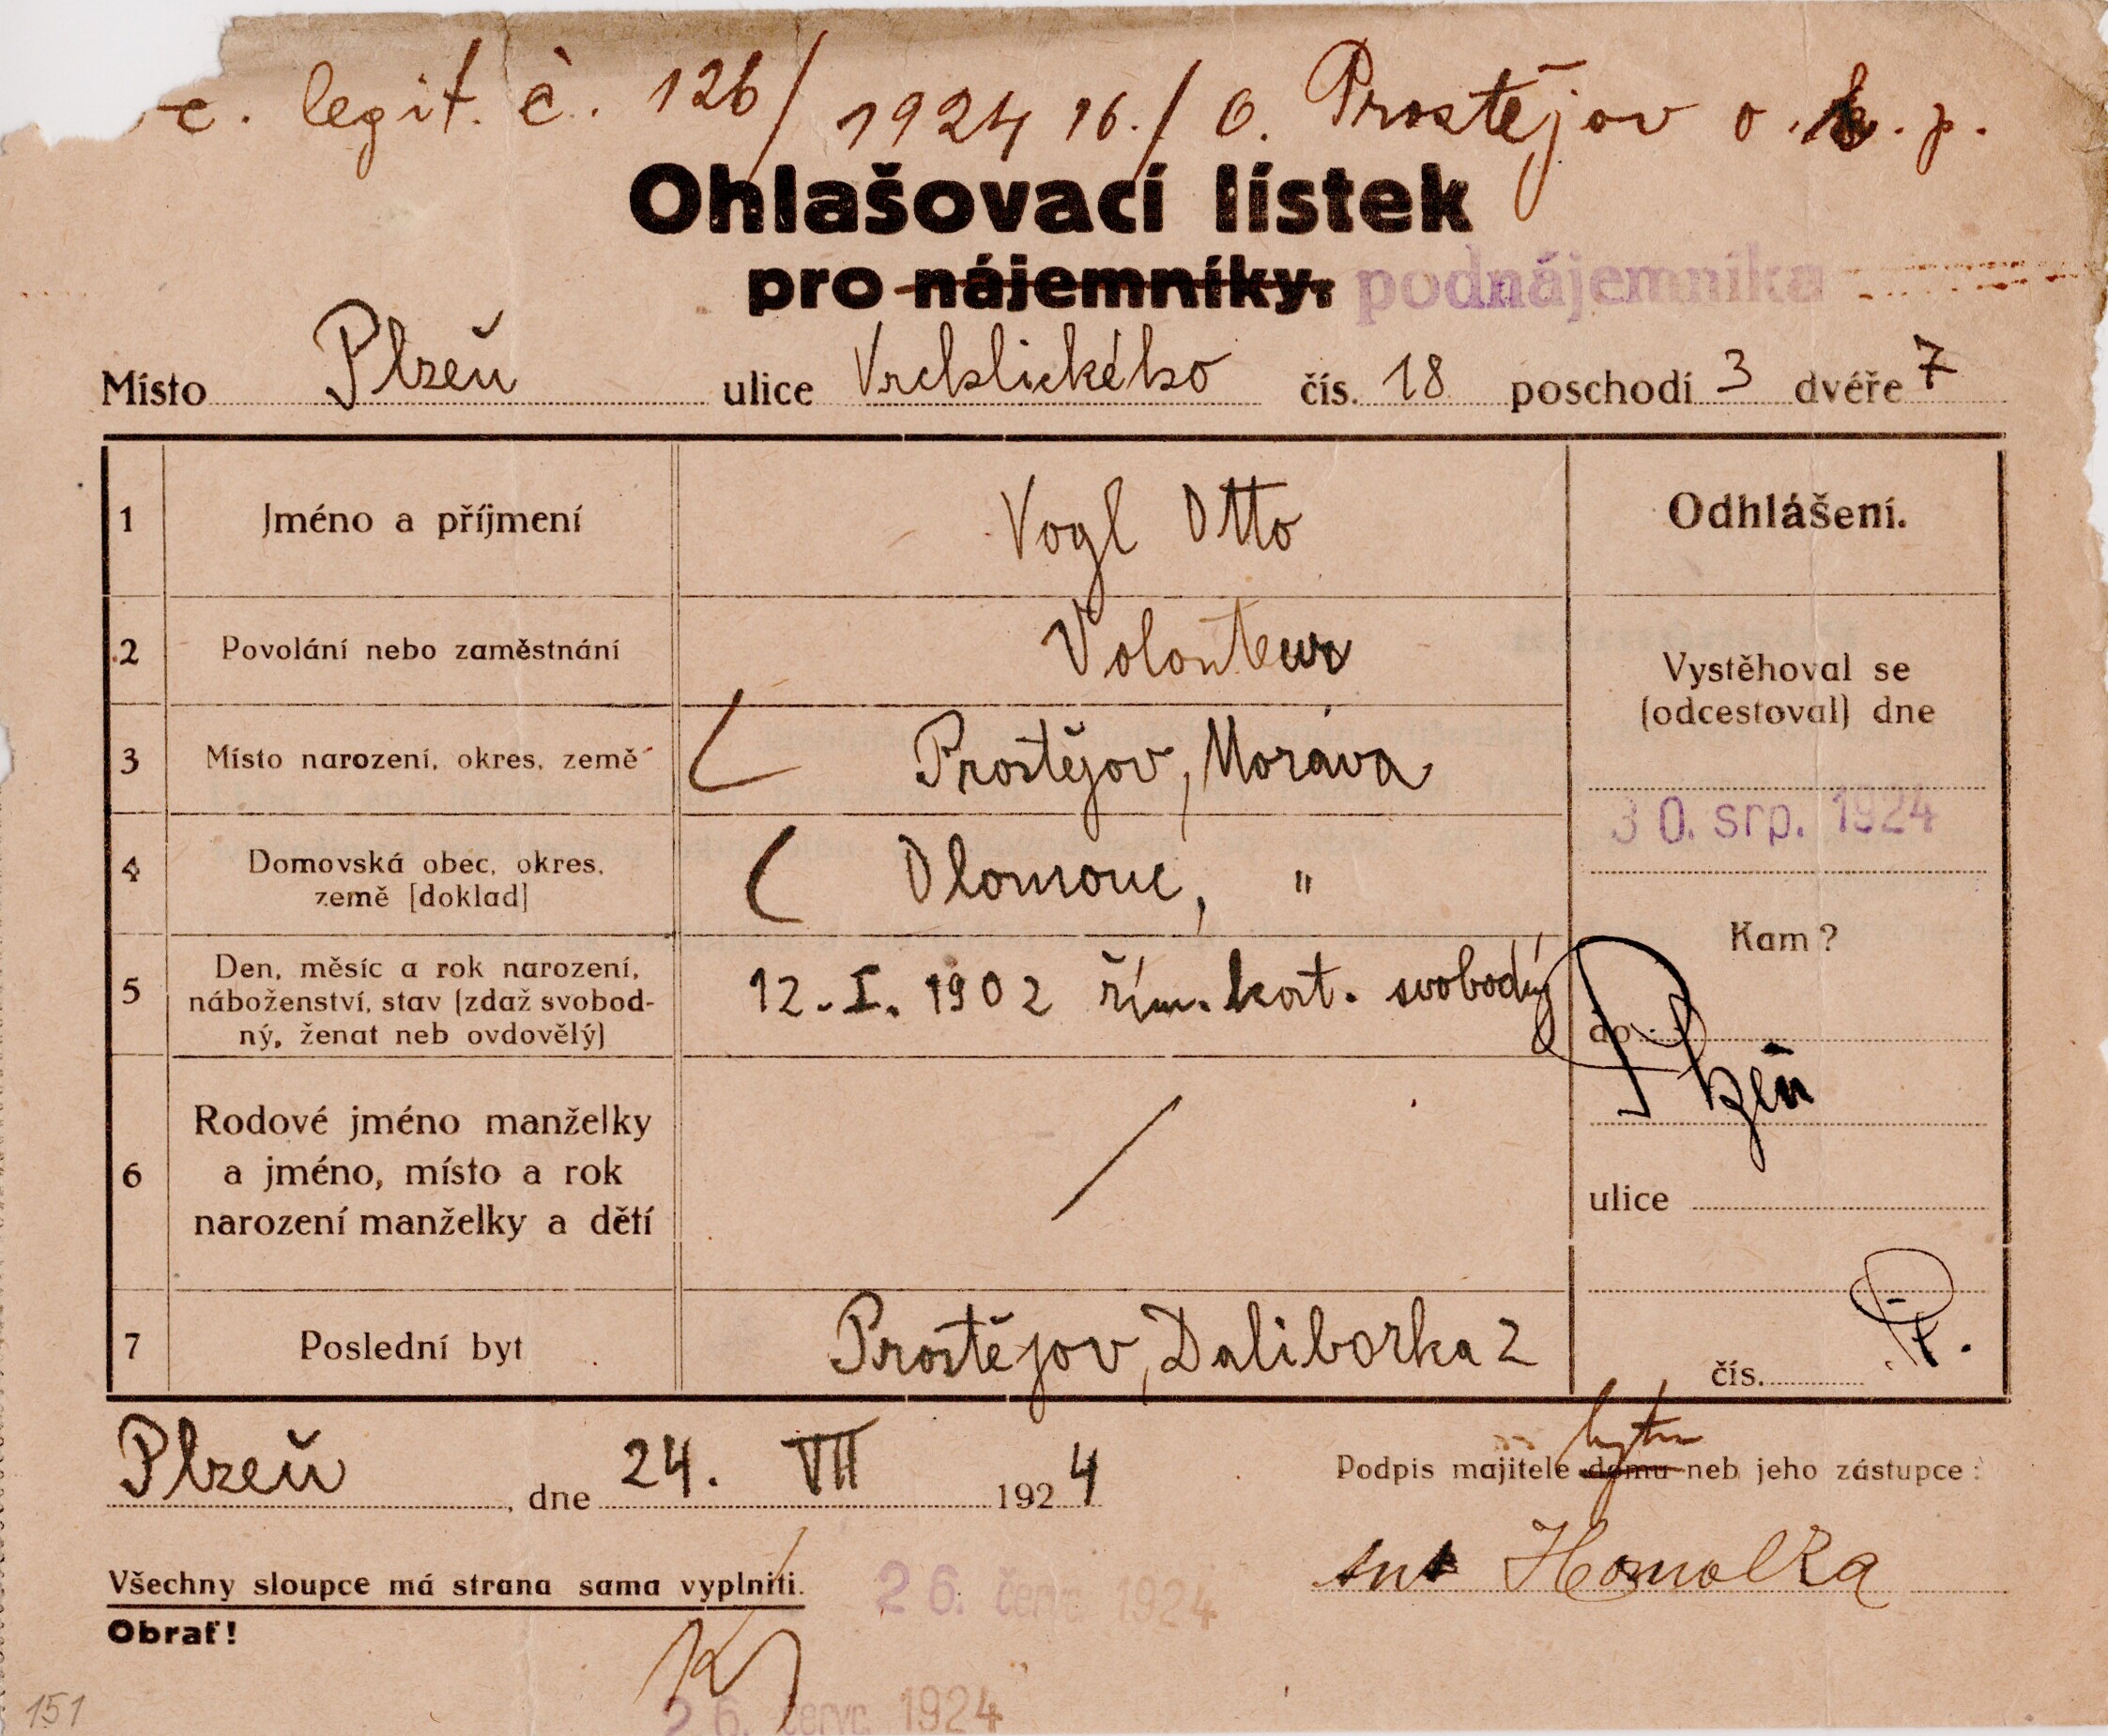 c. legit. č. 126/1924 16./6. Prostějov o. k. p.
Ohlašovací lístek
pro nájemníky. podnájemníka
Místo Plzeň ulice Vrchlického čís. 18 poschodí 3 dvéře 7
1 Jméno a příjmení Vogl Otto Odhlášení.
2 Povolání nebo zaměstnání Volonteur
Vystěhoval se
(odcestoval) dne
3 Místo narození, okres, země Prostějov, Morava
30. srp. 1924
4 Domovská obec, okres,
země [doklad] Olomouc, "
Kam?
5 Den, měsíc a rok narození,
náboženství, stav (zdaž svobod-
ný, ženat neb ovdovělý)
12. I. 1902 řím. kat. svobodný
do Plzeň
6 Rodové jméno manželky
a jméno, místo a rok
narození manželky a dětí
/
ulice
7 Poslední byt Prostějov, Daliborka 2
čís.
Plzeň, dne 24. VII 1924
bytu
Podpis majitele domu neb jeho zástupce:
Homolka
Všechny sloupce má strana sama vyplniti.
26. červ. 1924
Obrať!
26. červc. 1924
151